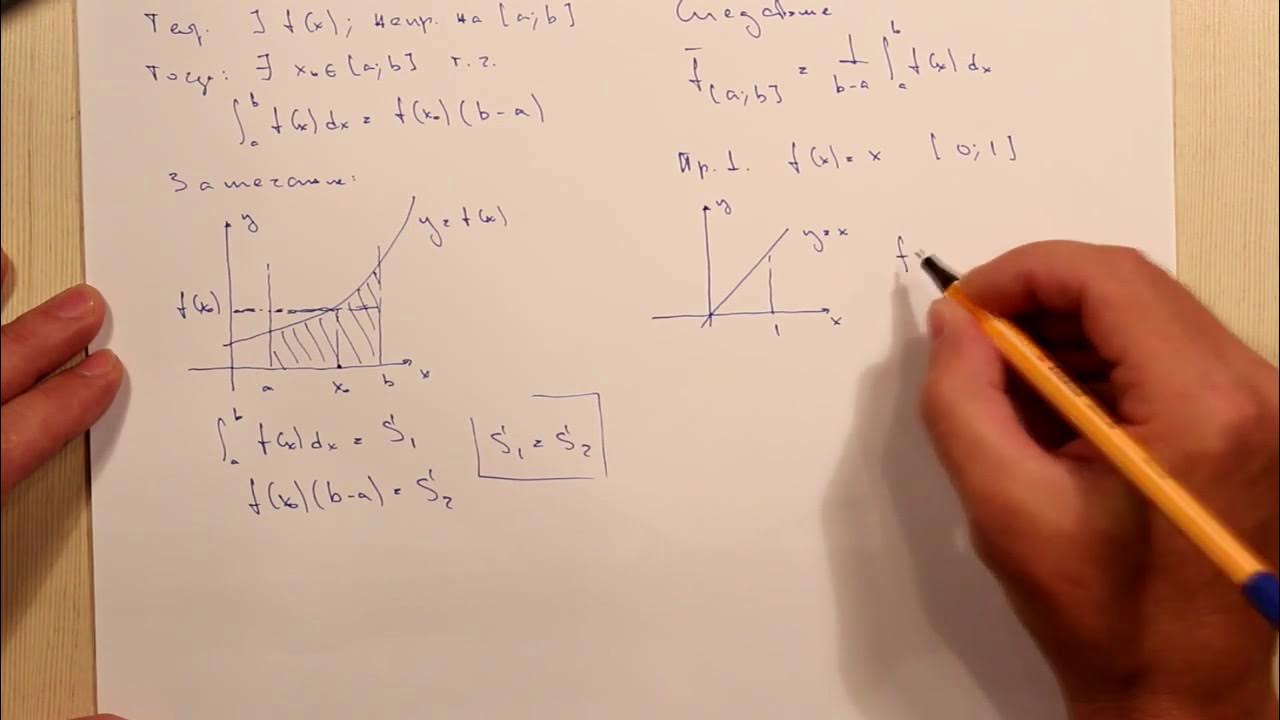 Теор. ∃ f(x); непр. на [a;b]
Тогда: ∃ x₀∈[a;b] т.ч.
∫ₐᵇ f(x)dx = f(x₀)(b-a)
Замечание:
y
y=f(x)
f(x₀)
a x₀ b x
∫ₐᵇ f(x)dx = S₁
f(x₀)(b-a) = S₂
S₁ = S₂
Следствие
f̄[a;b] = 1/(b-a) ∫ₐᵇ f(x)dx
Пр. 1. f(x)=x [0;1]
y
y=x
x
1
f